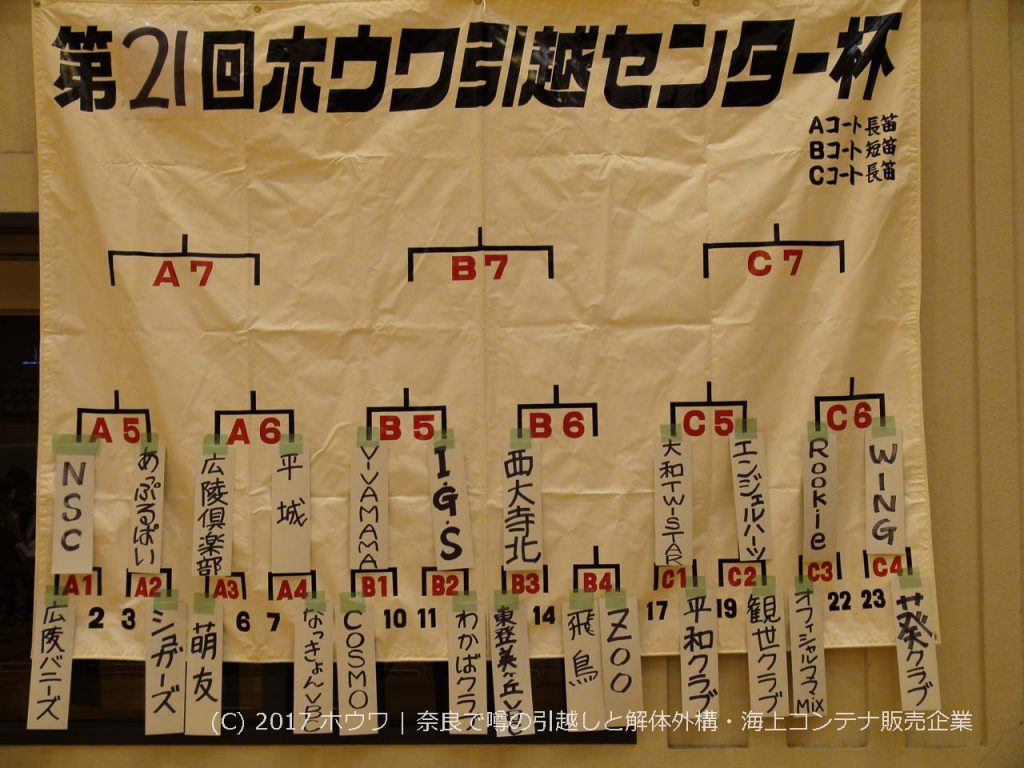 第21回ホウワ引越センター杯
Aコート長笛
Bコート短笛
Cコート長笛
A7 B7 C7
A5 A6 B5 B6 C5 C6
NSC
あっぷるぱい
広陵倶楽部
平城
V-VAMAMA
I.G.S
西大寺北
大和TWISTAR
エンジェルハーツ
Rookie
WING
A1 A2 A3 A4 B1 B2 B3 B4 C1 C2 C3 C4
2 3 6 7 10 11 14 17 19 22 23
広陵バニーズ
シュガーズ
萌友
なっきょんVBC
COSMO
わかばクラブ
東登美ヶ丘VC
飛鳥
ZOO
平和クラブ
観世クラブ
オフィシャルママMix
葵クラブ
(C) 2017 ホウワ | 奈良で噂の引越しと解体外構・海上コンテナ販売企業